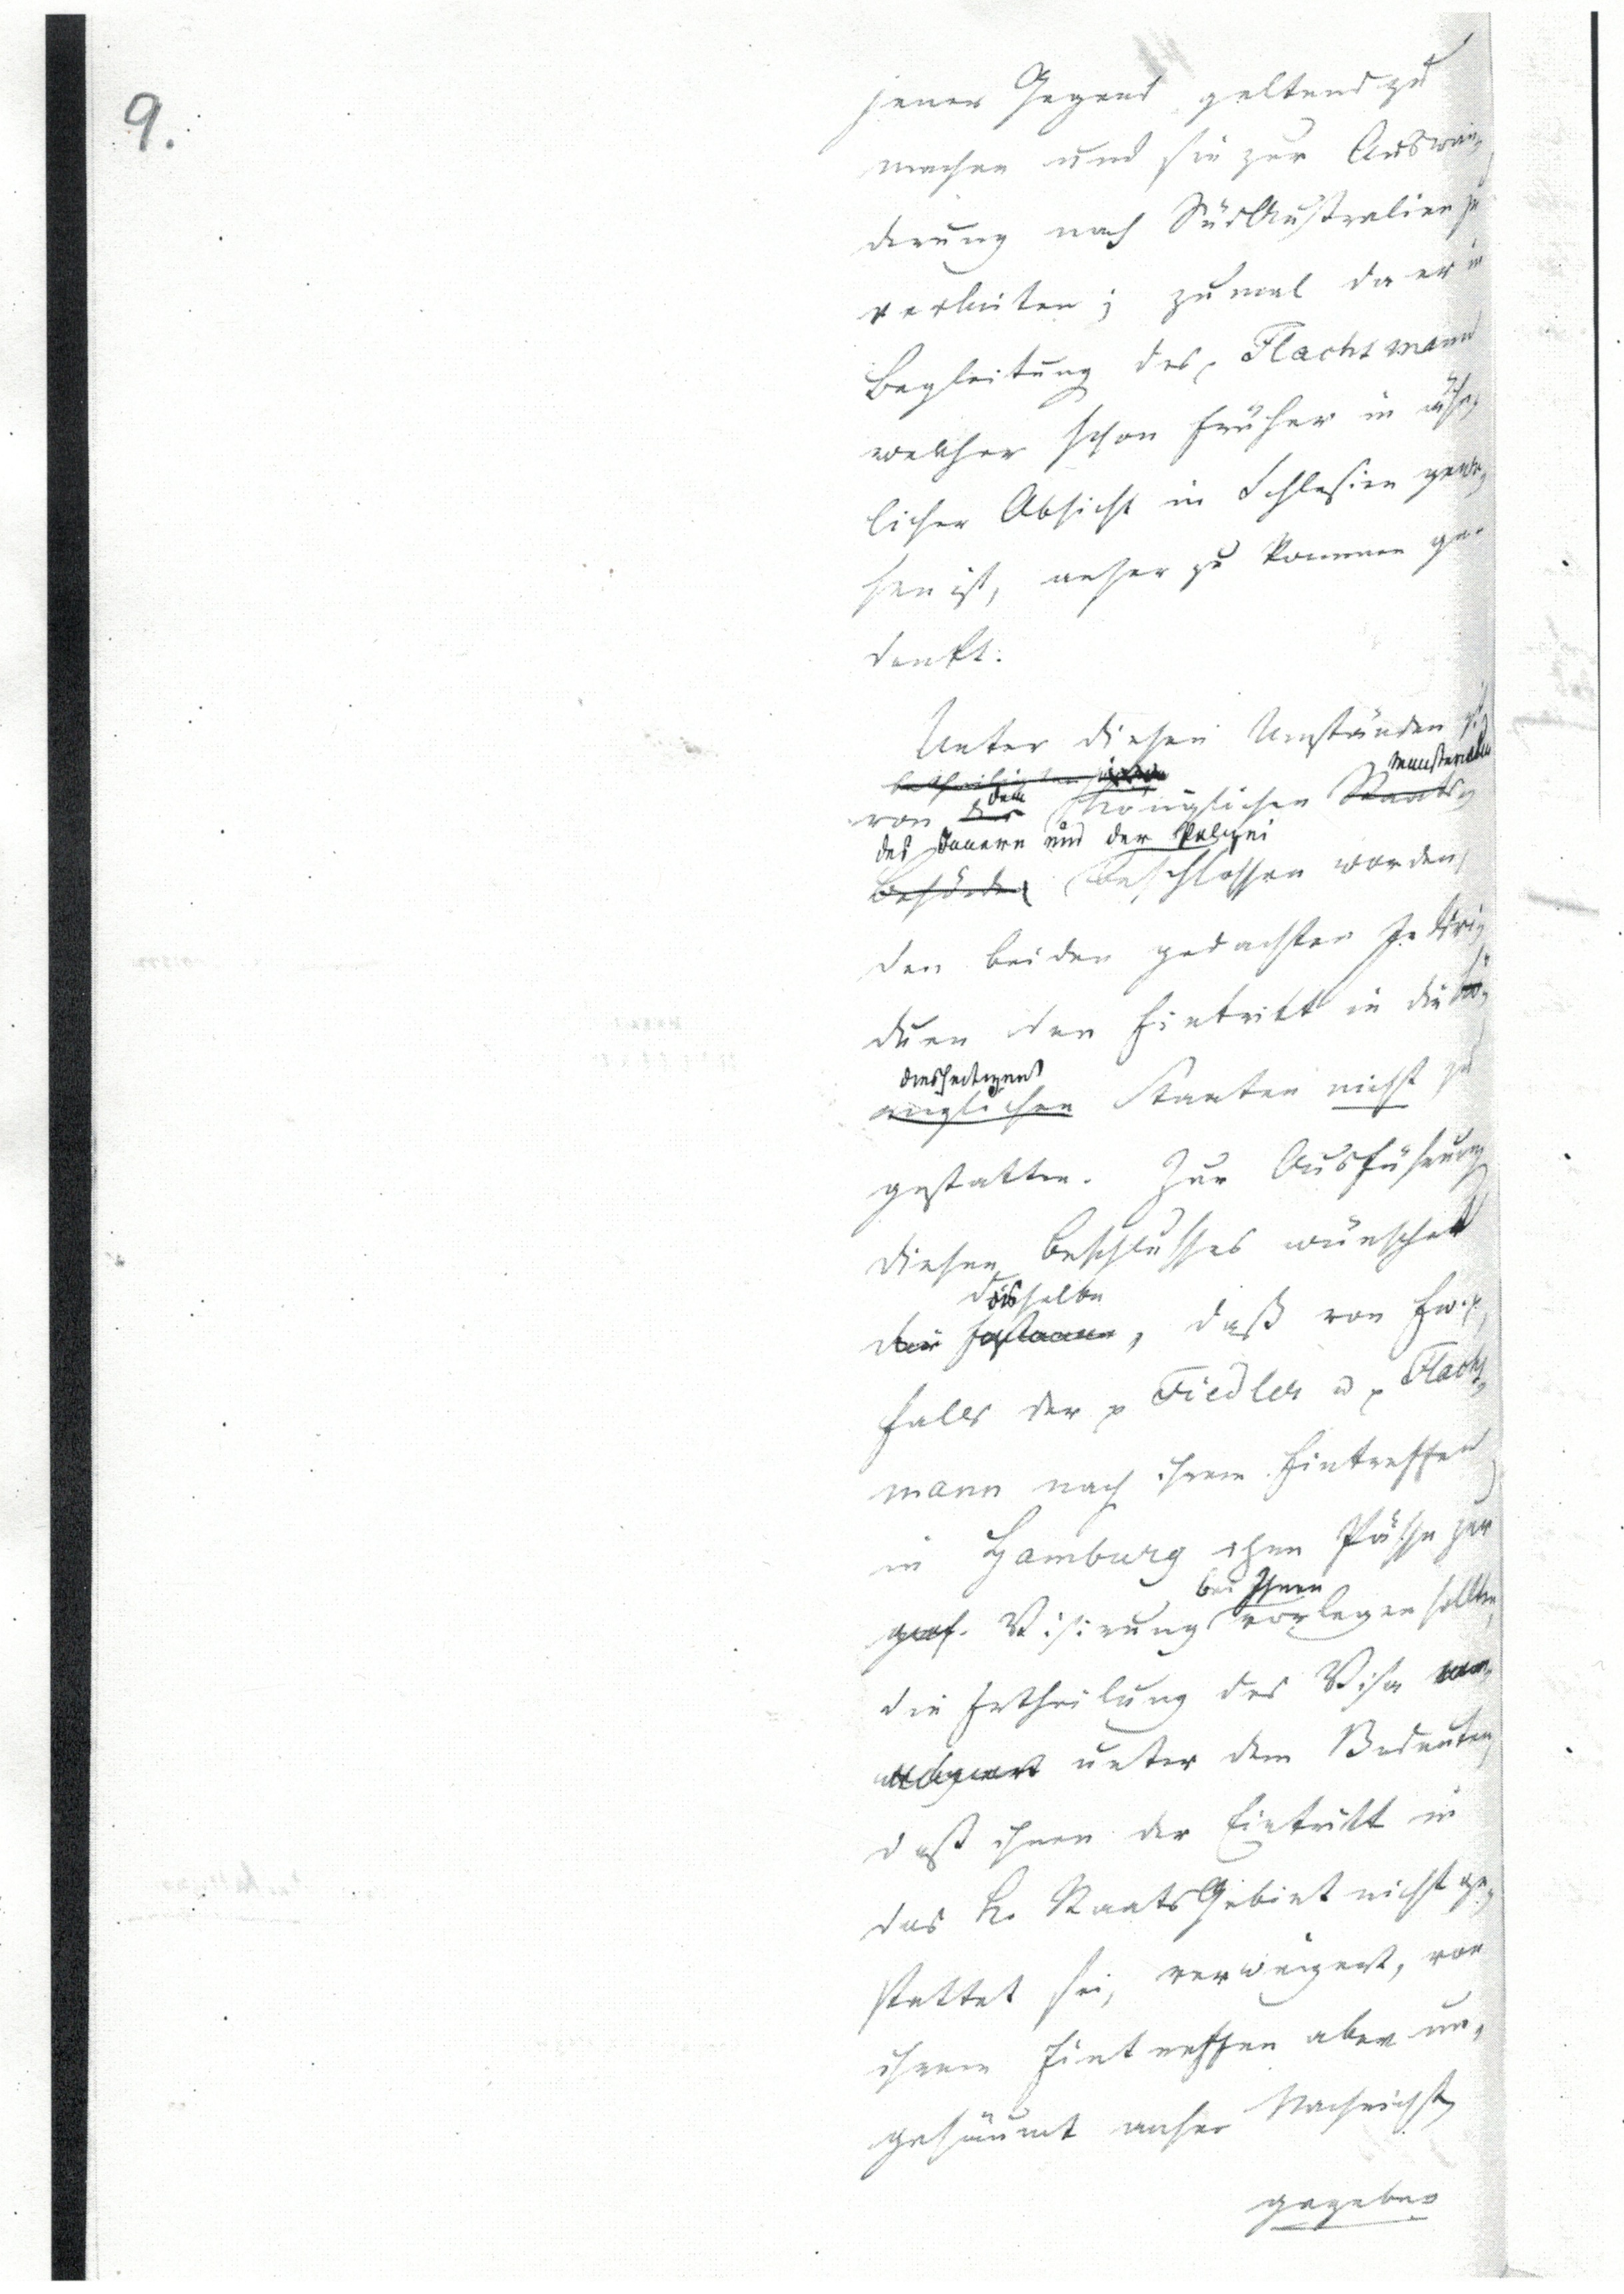 9.
jener Gegend geltend zu
machen und sie zur Auswan-
derung nach Süd Australien zu
verleiten; zumal da er in
Begleitung des p Flachsmann
welcher schon früher in ähn-
licher Absicht in Schlesien gewe-
sen ist, anher zu kommen ge-
denkt.
Unter diesen Umständen ist
betheiligten
ministerium
von der dem Königlichen Staats-
des Innern und der Polizei
Behörden beschlossen worden,
den beiden gedachten Indivi-
duen den Eintritt in die Kö-
diesseitigen
niglichen Staaten nicht zu
gestatten. Zur Ausführung
dieses Beschlusses wünschet
dasselbe
die, daß von Ew. p,
falls der p Fiedler u p Flachs-
mann nach ihrem Eintreffen
in Hamburg ihre Pässe zur
bei Ihnen
Visirung vorlegen sollten,
die Ertheilung des Visa
unter dem Bedeuten,
daß ihnen der Eintritt in
das K. Staats Gebiet nicht ge-
stattet sei, verweigert, von
ihrem Eintreffen aber un-
gesäumt anher Nachricht
gegeben